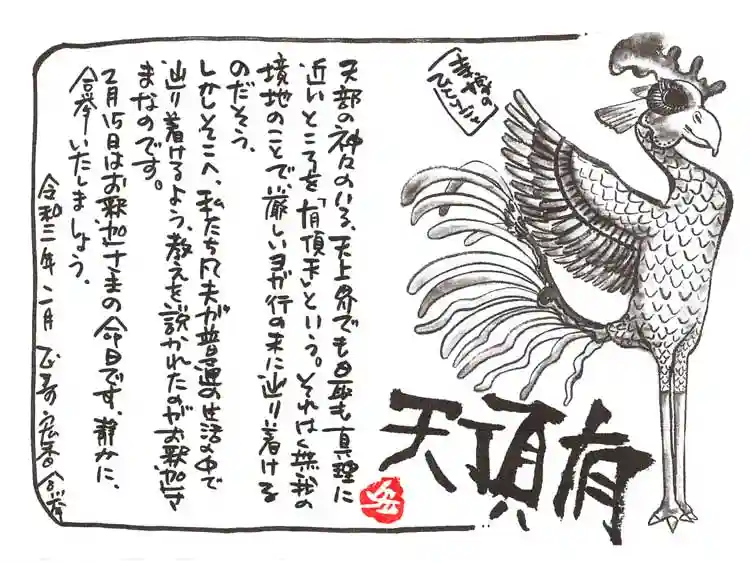 有頂天
天部の神々のいる、天上界でも最も真理に
近いところを「有頂天」という。それは無我の
境地のことで、厳しいヨガ行の末に辿り着ける
のだそう。
しかしそこへ、私たち凡夫が普通の生活の中で
辿り着けるよう、教えを説かれたのがお釈迦さ
まなのです。
2月15日はお釈迦さまの命日です、静かに、
合掌いたしましょう。
令和三年 二月 合掌